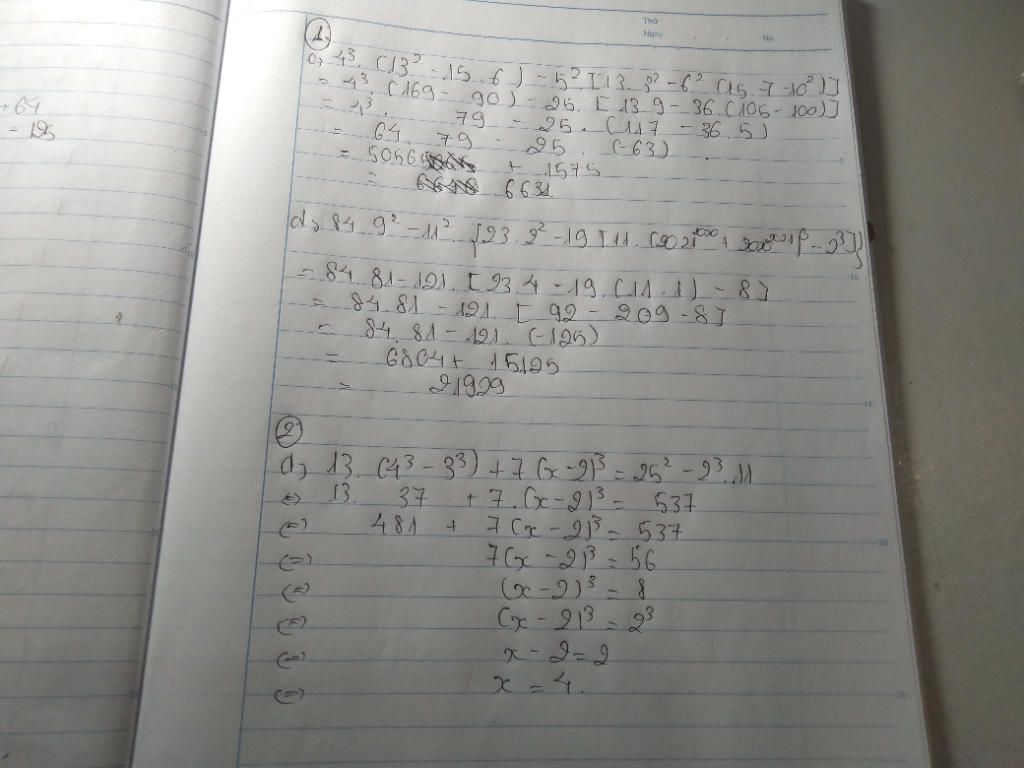 Thứ
Ngày No
+ 64
= 125
1.
c, 4³. (13² - 15. 6) - 5² [13. 3² - 6² (15. 7 - 10²)]
= 4³. (169 - 90) - 25. [13.9 - 36.(105 - 100)]
= 4³. 79 - 25. (117 - 36.5)
= 64. 79 - 25. (-63)
= 5056 + 1575
= 6631
d, 84. 9² - 11². {23. 2² - 19 [11. (2021 + - 2³]}
= 84. 81 - 121. [23.4 - 19. (11.1) - 8]
= 84.81 - 121. [92 - 209 - 8]
= 84. 81 - 121. (-125)
= 6804 + 15125
= 21929
2
a, 13. (4³ - 3³) + 7 (x - 2)³ = 25² - 2³. 11
⇔ 13. 37 + 7. (x - 2)³ = 537
⇔ 481 + 7 (x - 2)³ = 537
⇔ 7(x - 2)³ = 56
⇔ (x - 2)³ = 8
⇔ (x - 2)³ = 2³
⇔ x - 2 = 2
⇔ x = 4.